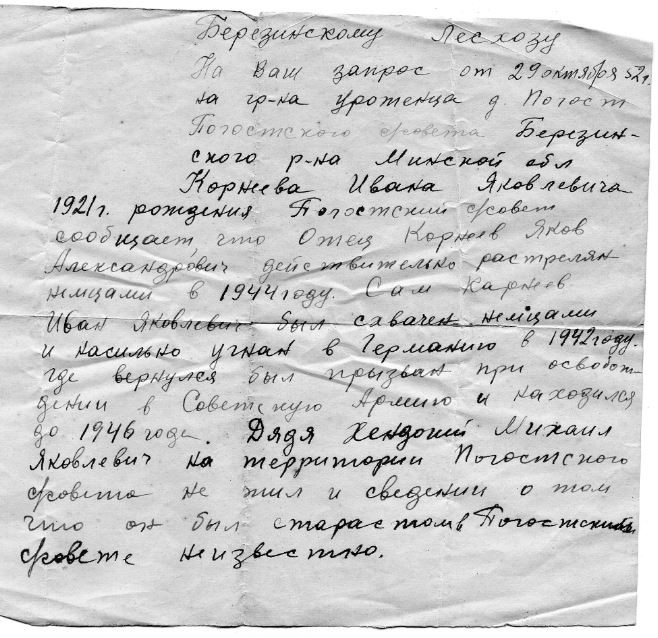 Березинскому Лесхозу
На Ваш запрос от 29 октября 52 г.
на гр-на уроженца д. Погост
Погостского с/совета Березин-
ского р-на Минской обл
Корнеева Ивана Яковлевича
1921 г. рождения Погостский с/совет
сообщает, что Отец Корнеев Яков
Александрович действительно растрелян
немцами в 1944 году. Сам Карнеев
Иван Яковлевич был схвачен немцами
и насильно угнан в Германию в 1942 году.
где вернулся был прызван при освобож-
дении в Советскую Армию и находился
до 1946 года. Дядя Михаил
Яковлевич на территории Погостского
с/совета не жил и сведении о том
что он был старастом в Погостским
с/совете неизвестно.